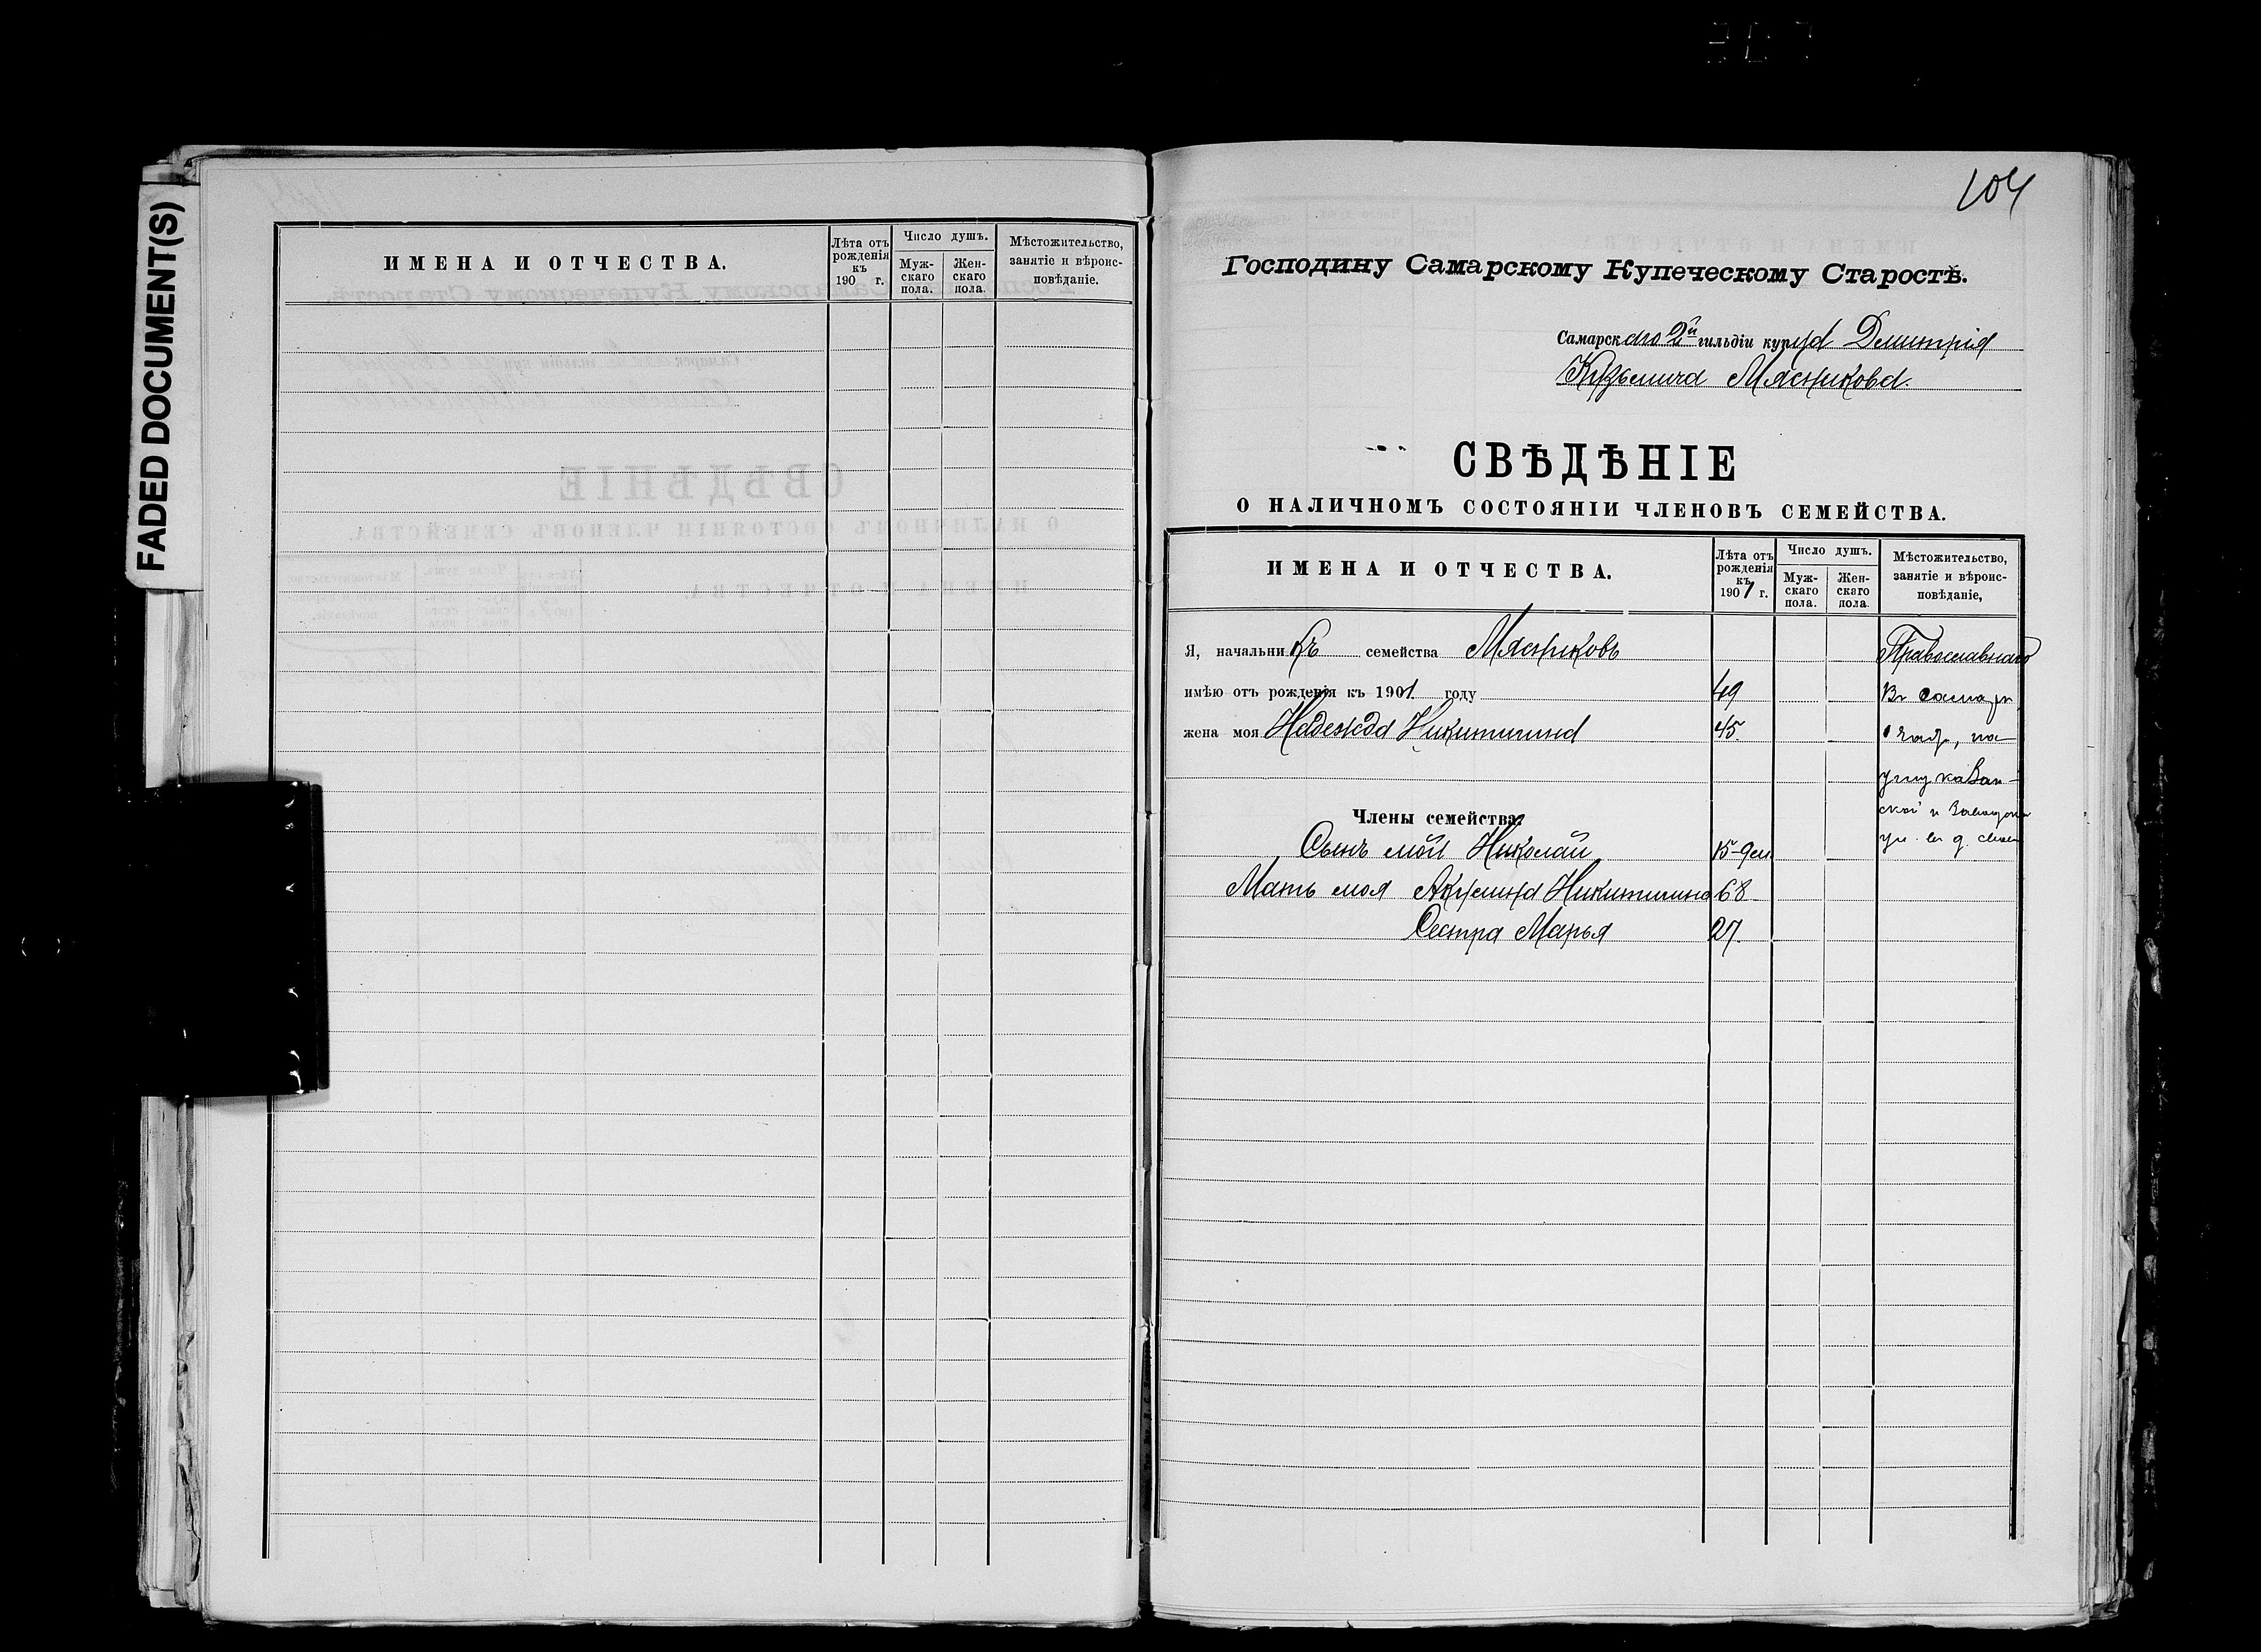 FADED DOCUMENT(S)
ИМЕНА И ОТЧЕСТВА.
Лѣта отъ рожденія къ 190 г.
Число душъ.
Муж-скаго пола.
Жен-скаго пола.
Мѣстожительство, занятіе и вѣроис-повѣданіе.
104
Господину Самарскому Купеческому Старостѣ.
Самарскаго 2й гильдіи купца Димитрія
Кузьмича Мясникова.
СВѢДѢНІЕ
О НАЛИЧНОМЪ СОСТОЯНІИ ЧЛЕНОВЪ СЕМЕЙСТВА.
ИМЕНА И ОТЧЕСТВА.
Лѣта отъ рожденія къ 1901 г.
Число душъ.
Муж-скаго пола.
Жен-скаго пола.
Мѣстожительство, занятіе и вѣроис-повѣданіе,
Я, начальникъ семейства Мясниковъ Православнаго
имѣю отъ рожденія къ 1901 году 49 Въ Самарѣ
жена моя Надежда Никитишна 45. 1 части, на
углу Казан-
ской и Заводской
Члены семейства:
ул. въ д. своемъ
Сынъ мой Николай 15-9м
Мать моя Акулина Никитишна 68
Сестра Марья 27.